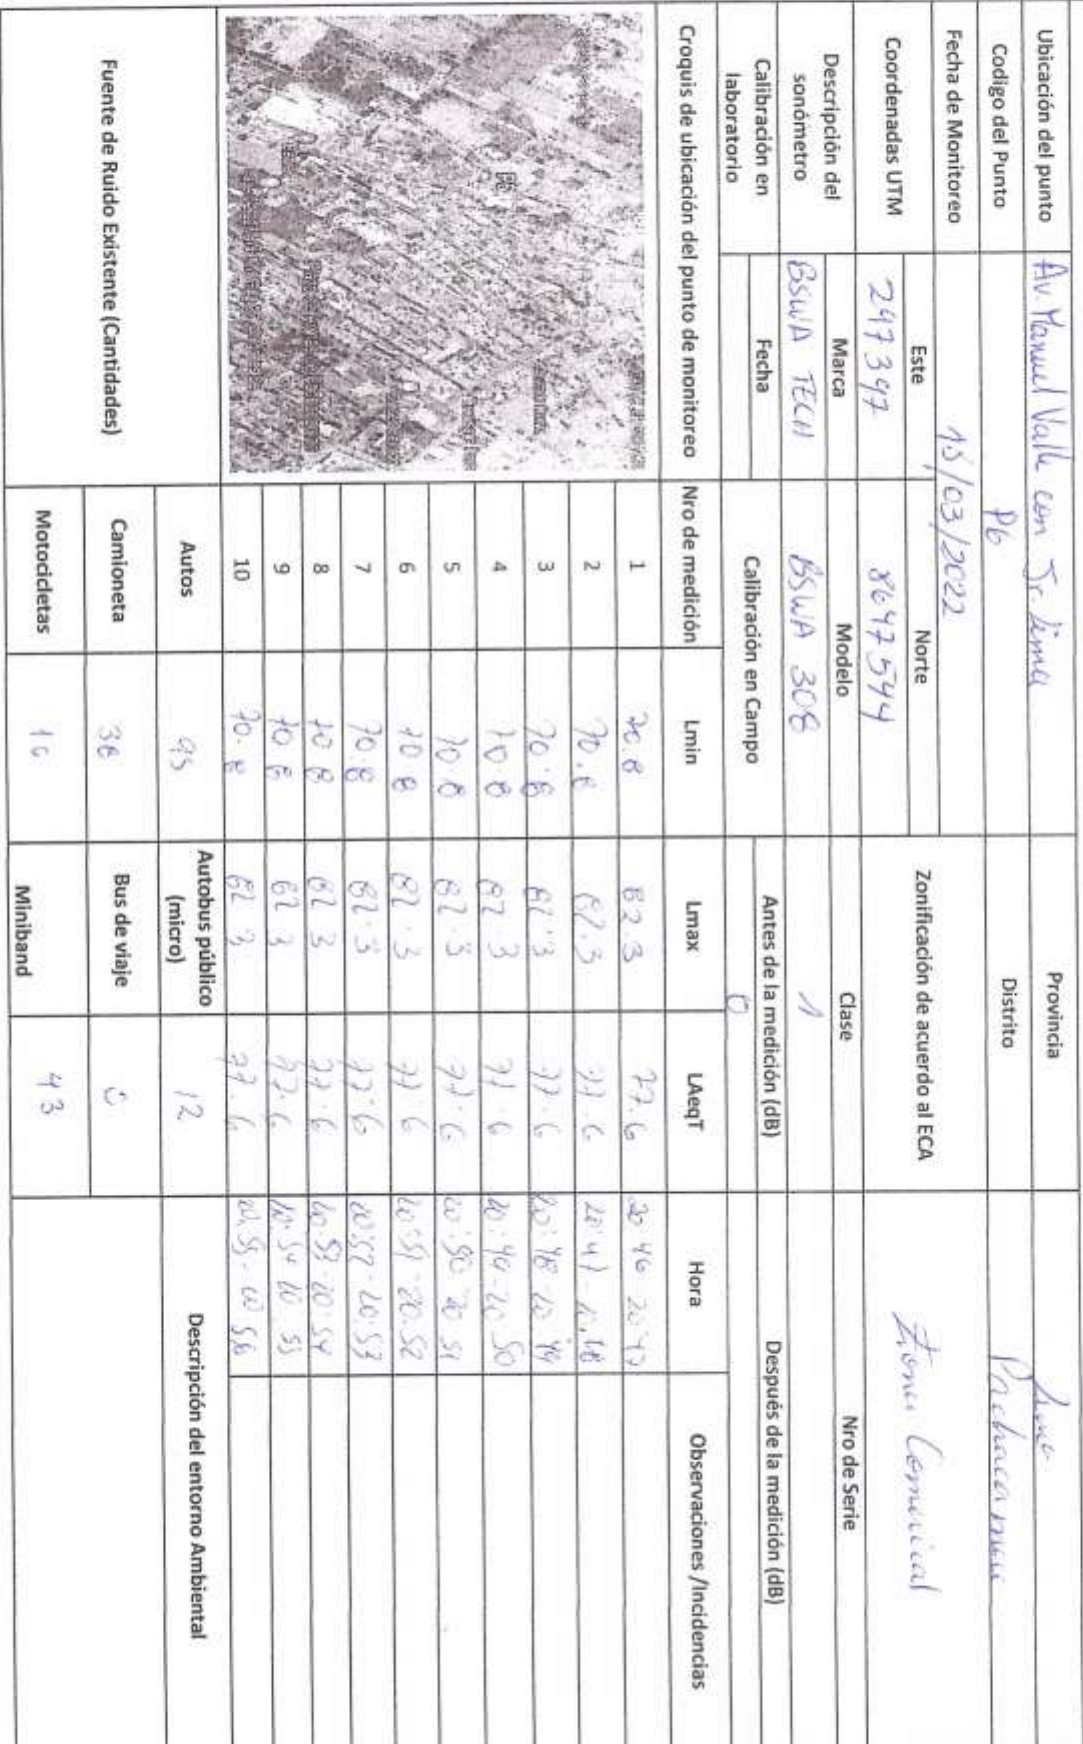 Ubicación del punto Av. Manuel Valle con Jr Lima Provincia Lima
Codigo del Punto P6 Distrito Pachacamac
Fecha de Monitoreo 15/03/2022
Coordenadas UTM Este Norte Zonificación de acuerdo al ECA Zona Comercial
297397 8647544
Descripción del sonómetro Marca Modelo Clase Nro de Serie
BSWA TECH BSWA 308 1
Calibración en laboratorio Fecha Calibración en Campo Antes de la medición (dB) Después de la medición (dB)
0
Croquis de ubicación del punto de monitoreo Nro de medición Lmin Lmax LAeqT Hora Observaciones /Incidencias
P6
1 70.8 82.3 77.6 20 46 20 47
2 70.8 82.3 77.6 20:47 20:48
3 70.8 82.3 77.6 20:48 20 49
4 70.8 82 3 77.6 20:49-20 50
5 70.8 82.3 77.6 20:50 20 51
6 70 8 82.3 77 6 20:51-20.52
7 70.8 82.3 77.6 20:52-20:53
8 70 8 82 3 77.6 20:53-20:54
9 70 8 82 3 77.6 20:54 20 55
10 70.8 82 3 77.6 20:55-20 56
Fuente de Ruido Existente (Cantidades) Autos 95 Autobus público (micro) 12 Descripción del entorno Ambiental
Camioneta 38 Bus de viaje 0
Motocicletas 16 Miniband 43